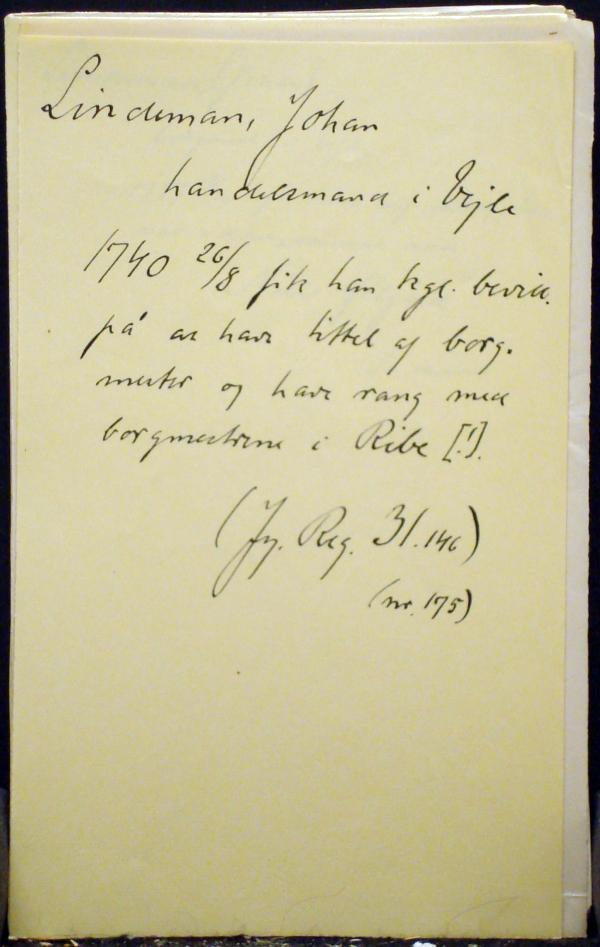 Lindeman, Johan
handelsmand i Vejle
1740 26/8 fik han kgl. bevill.
på at have tittel af borg-
mester og have rang med
borgmestrene i Ribe [!].
(Jy. Reg. 31.146)
(nr. 175)